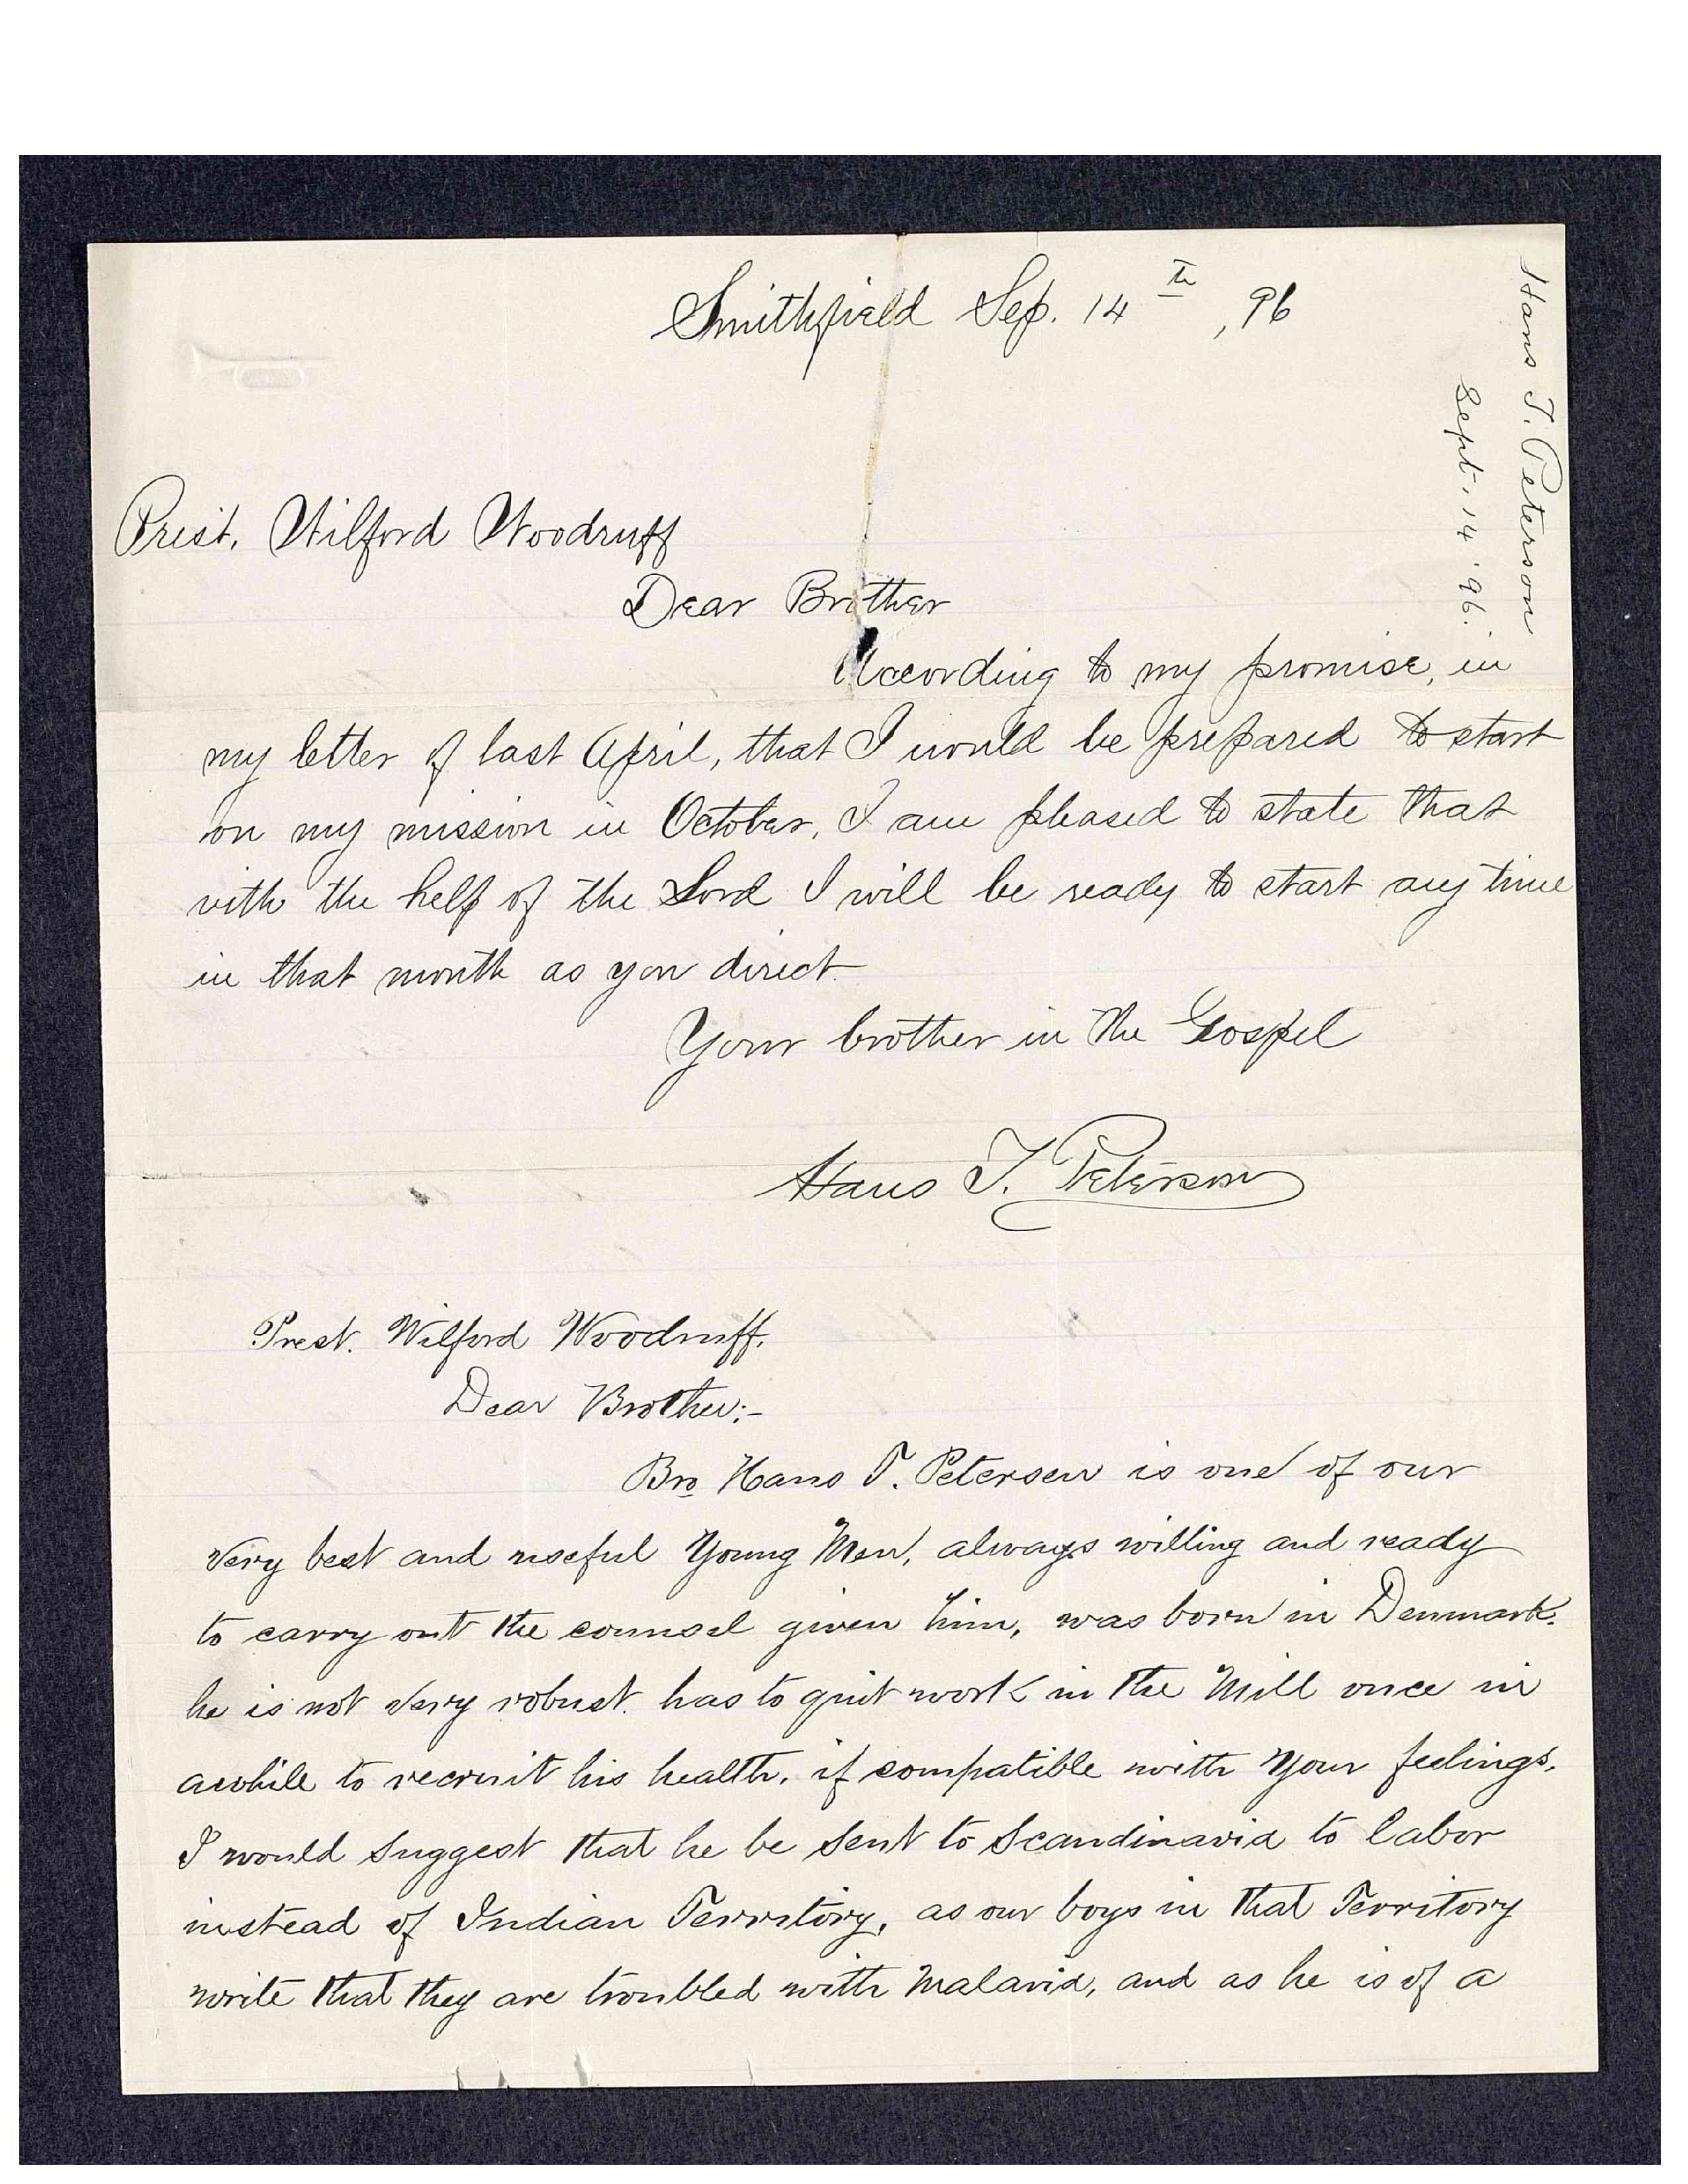 Smithfield Sep. 14th, 96
Hans T. Peterson
Sept. 14 '96.
Prest. Wilford Woodruff
Dear Brother
According to my promise, in
my letter of last April, that I would be prepared to start
on my mission in October, I am pleased to state that
with the help of the Lord I will be ready to start any time
in that month as you direct.
Your brother in the Gospel
Hans T. Peterson
Prest. Wilford Woodruff.
Dear Brother:-
Bro Hans T. Petersen is one of our
very best and useful Young Men, always willing and ready
to carry out the counsel given him, was born in Denmark.
he is not very robust. has to quit work in the Mill once in
awhile to recruit his health. if compatible with your feelings.
I would suggest that he be sent to Scandinavia to labor
instead of Indian Territory, as our boys in that Territory
write that they are troubled with Malaria, and as he is of a